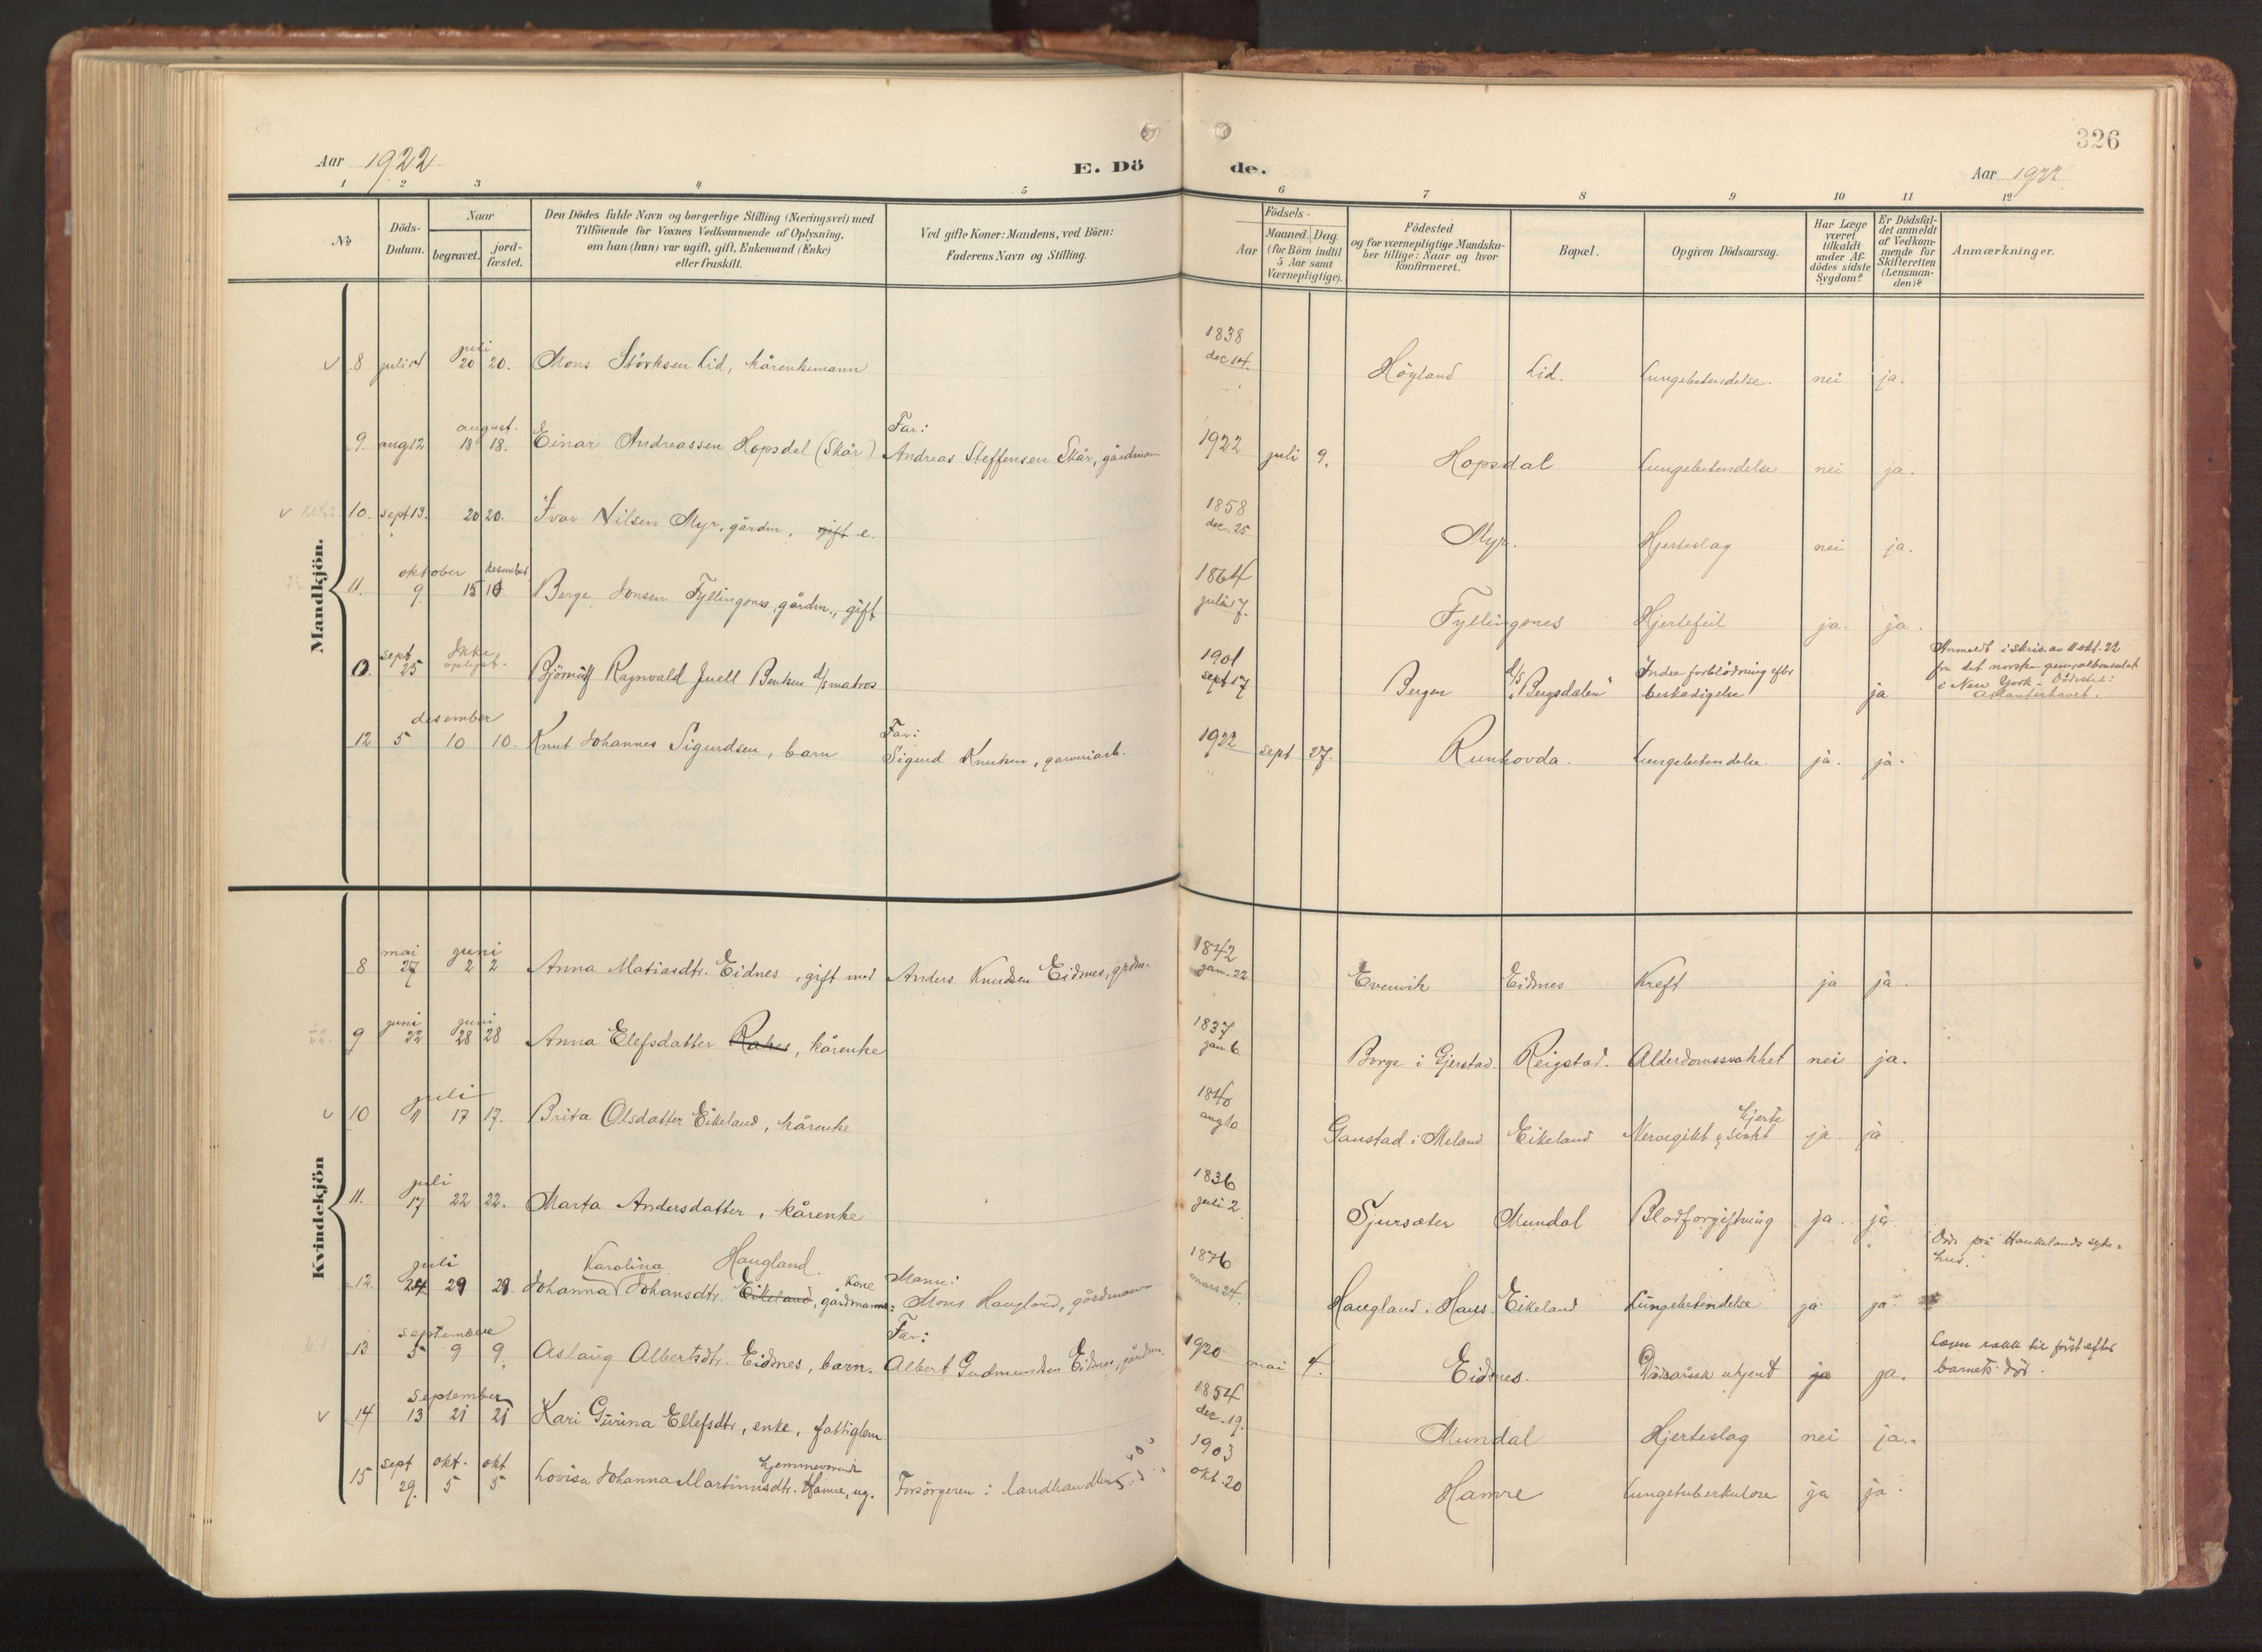 326
Aar 1922
E. Dö
de.
Aar 1922
1 2 3 4 5 6 7 8 9 10 11 12
No
Döds-
Datum.
Naar
begravet.
jord-
fæstet.
Den Dödes fulde Navn og borgerlige Stilling (Næringsvei) med
Tilföiende for Voxnes Vedkommende af Oplysning,
om han (hun) var ugift, gift, Enkemand (Enke)
eller fraskilt.
Ved gifte Koner: Mandens, ved Börn:
Faderens Navn og Stilling.
Födsels-
Aar
Maaned. Dag.
(for Börn indtil
5 Aar samt
Værnepligtige).
Födested
og for værnepligtige Mandska-
ber tillige: Naar og hvor
konfirmeret.
Bopæl.
Opgiven Dödsaarsag.
Har Læge
været
tilkaldt
under Af-
dödes sidste
Sygdom?
Er Dödsfal-
det anmeldt
af Vedkom-
mende for
Skifteretten
(Lensman-
den)?
Anmærkninger.
Mandkjön.
8 juli 14 juli 20 20. Mons Störksen Lid, kårenkemann 1838 dec 14. Höyland Lid. Lungebetendelse. nei ja.
9. aug 12 august. 18 18. Einar Andreassen Hopsdal (Skår) Far: Andreas Steffensen Skår, gårdman 1922 juli 9. Hopsdal Lungebetendelse nei ja.
10. sept 13. 20 20. Ivar Nilsen Myr, gårdm. gift e. 1858 dec. 25 Myr. Hjerteslag nei ja.
11. oktober 9 15 desember 10 Berge Jonsen Fyllingsnes, gårdm., gift 1864 juli 17. Fyllingsnes Hjertefeil ja. ja.
0. sept 25 Ikke oplyst. Ragnvald Juell Bentsen d/s matros 1901 sept 17 Bergen d/s "Bergsdalen" Indre forblödning efter beskadigelse ja
Anmeldt i skriv. av 11 okt. 22
fra det norske generalkonsulat
i New York - Dödssted:
Atlanterhavet.
12 desember 5 10 10. Knut Johannes Sigurdsen, barn Far: Sigurd Knutsen, garveriarb. 1922 sept 27. Runhovda. Lungebetendelse. ja. ja.
Kvindekjön
8 mai 27 juni 2 2 Anna Matiasdtr. Eidnes, gift med Anders Knudsen Eidnes, grdm. 1842 jan. 22 Evenvik Eidnes Kreft ja ja.
9 juni 22 juni 28 28 Anna Elefsdatter, kårenke 1837 jan 6 Borge i Gjerstad. Reigstad. Alderdomssvakhet nei ja.
10 juli 11 17 17. Brita Olsdatter Eikeland, kårenke 1840 aug 10 Gaustad i Meland Eikeland Nervegikt & hjerte ja ja
11. juli 17 22 22. Marta Andersdatter, kårenke 1836 juli 2. Sjursæter Mundal Blodforgiftning ja. ja
12. juli 24 29 29 Johanna Karolina Johansdtr. Eikeland Haugland, gårdmanns kone Mann: Mons Haugland, gårdmann 1876 mars 24. Haugland i Haus Eikeland Lungebetendelse ja ja
Död på Haukelands syke-
hus.
13 september 5 9 9. Aslaug Albertsdtr. Eidsnes, barn. Far: Albert Gudmundsen Eidsnes, gårdm. 1920 mai 4. Eidsnes. Dödsårsak ukjent ja ja.
Lægen rakk til först efter
barnets död.
14 september 13 21 21 Kari Gurina Ellefsdtr, enke, fattiglem 1854 dec. 19. Mundal Hjerteslag nei ja.
15 sept 29. okt. 5 okt 5 Lovisa Johanna Martinusdtr. Hamre, hjemmeværende ug. Forsörgeren: landhandler 1903 okt. 20 Hamre Lungetuberkulose ja ja.